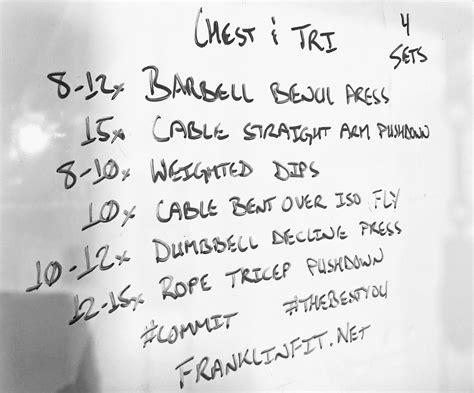 CHEST & TRI
4 SETS
8-12x BARBELL BENCH PRESS
15x CABLE STRAIGHT ARM PUSHDOWN
8-10x WEIGHTED DIPS
10x CABLE BENT OVER ISO FLY
10-12x DUMBBELL DECLINE PRESS
12-15x ROPE TRICEP PUSHDOWN
#COMMIT #THEBESTYOU
FRANKLINFIT.NET